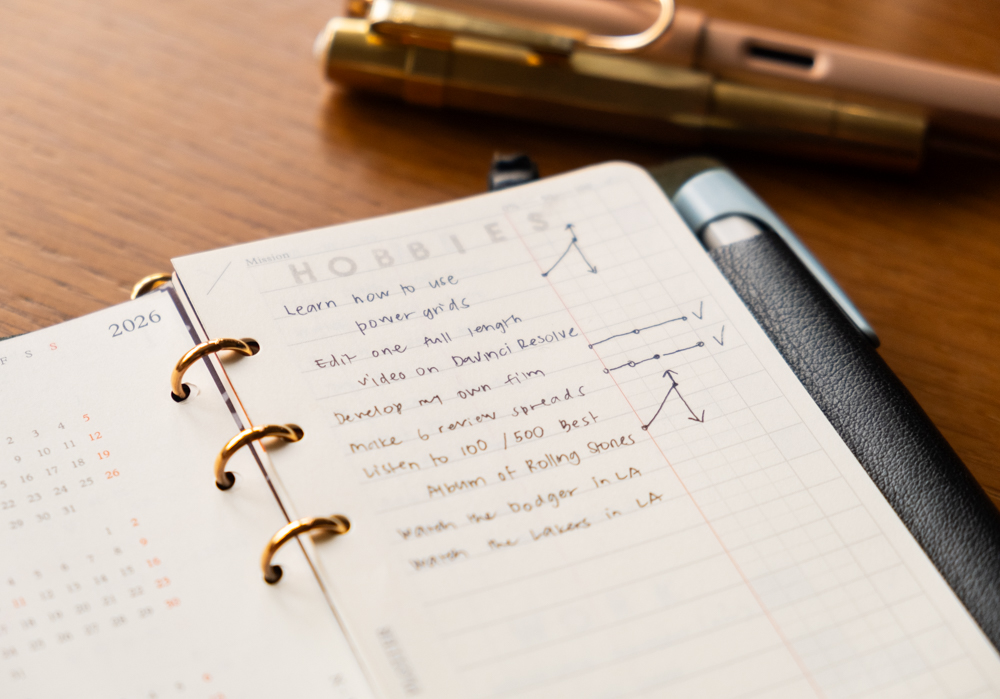 2026
F S S
2 3 4 5
9 10 11 12
15 16 17 18 19
22 23 24 25 26
29 30 31
1 2
9
16
23
30
Mission
HOBBIES
Learn how to use
power grids
Edit one full length
video on Davinci Resolve
Develop my own film
Make 6 review spreads
Listen to 100 / 500 Best
Album of Rolling Stones
Watch the Dodger in LA
Watch the Lakers in LA